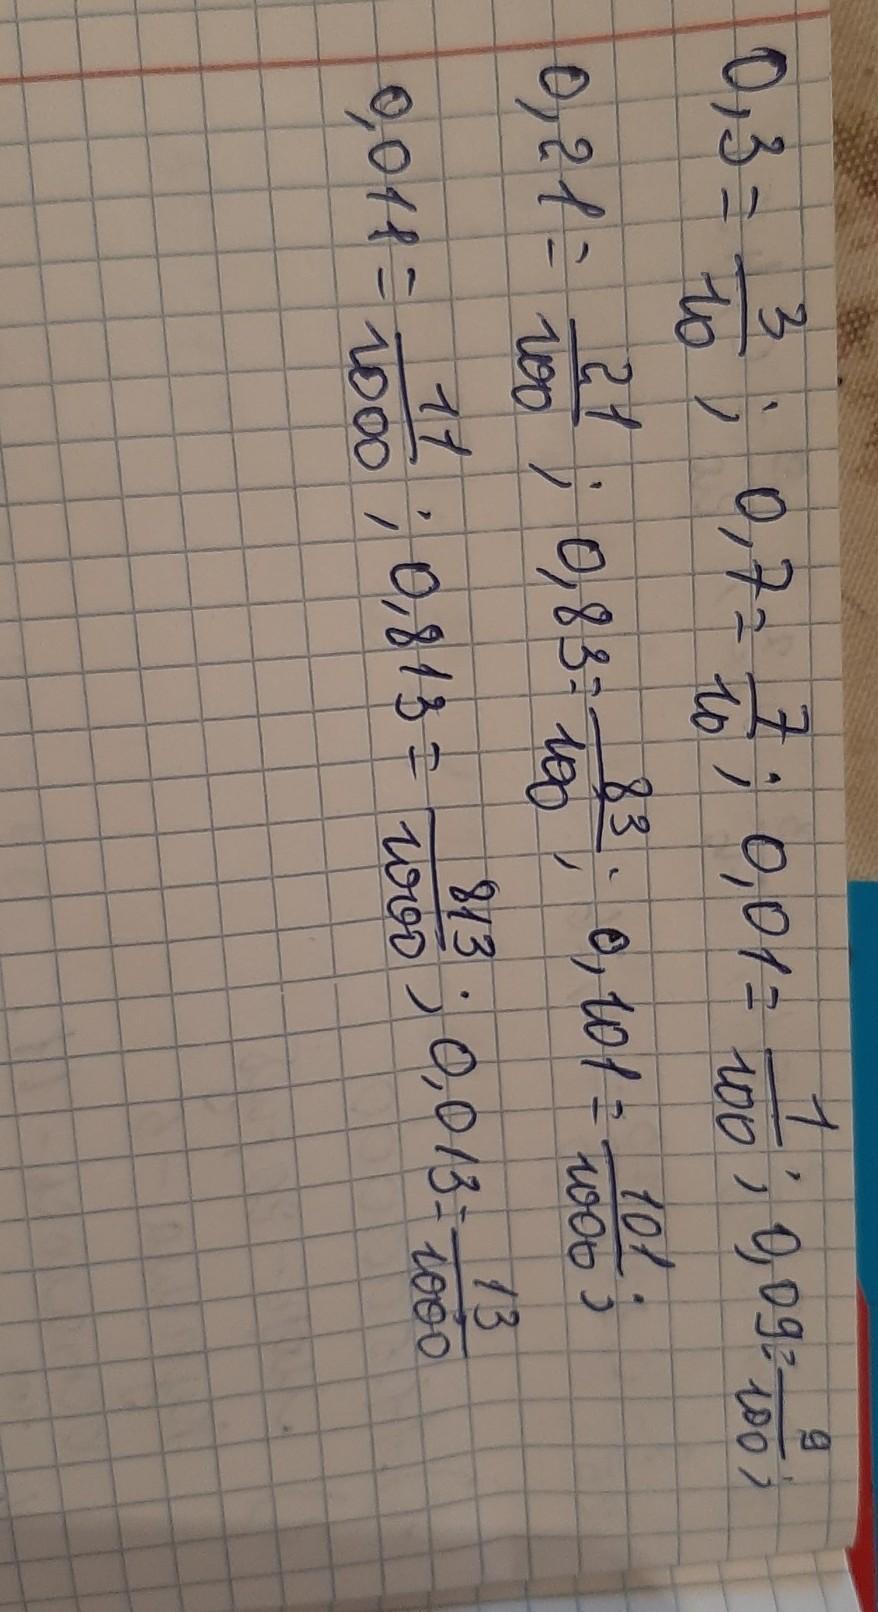 0,3 = 3/10 ; 0,7 = 7/10 ; 0,01 = 1/100 ; 0,09 = 9/100 ;
0,21 = 21/100 ; 0,83 = 83/100 ; 0,101 = 101/1000 ;
0,011 = 11/1000 ; 0,813 = 813/1000 ; 0,013 = 13/1000